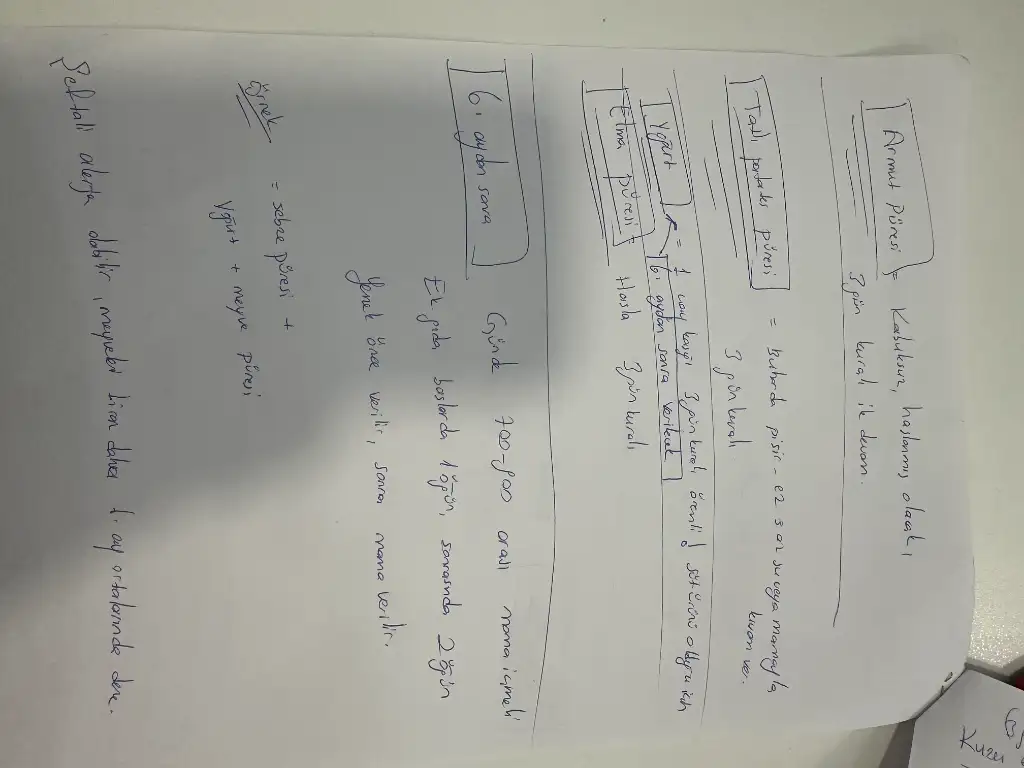 Armut Püresi = Kabuksuz, haşlanmış olacak,
3 gün kuralı ile devam.
Tatlı patates püresi = buharda pişir - ez
3 gün kuralı kıvam ver.
Yoğurt = 1 çay kaşığı 3 gün kuralı önemli!
6. aydan sonra verilecek
Elma püresi = Haşla 3 gün kuralı
6. aydan sonra Günde 700-800 arası mama içmeli
Ek gıda başlarda 1 öğün, sonrasında 2 öğün
Yemek önce verilir, sonra mama verilir.
Örnek = sebze püresi +
Yoğurt + meyve püresi
Şeftali alerji olabilir, meyveleri biraz daha 6. ay ortalarında dene.
Kuzu